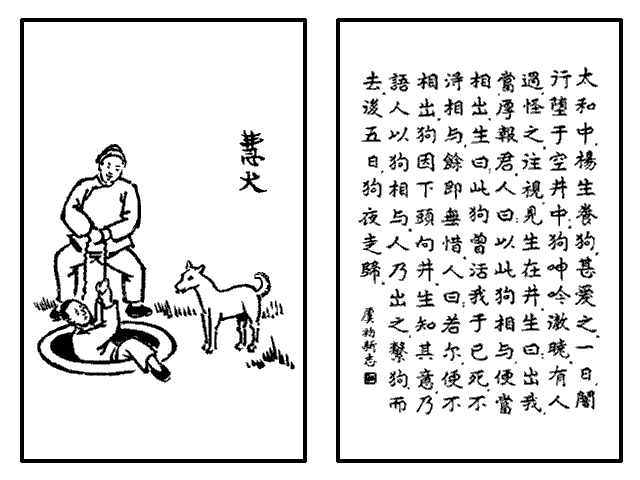 慧犬
太和中楊生養狗甚愛之一日闇
行墮于空井中狗呻吟澈曉有人
過怪之注視見生在井生曰出我
當厚報君人曰以此狗相与便當
相出生曰此狗曾活我于已死不
淂相与餘即無惜人曰若尔便不
相出狗因下頭向井生知其意乃
語人以狗相与人乃出之繫狗而
去後五日狗夜走歸
虞初新志